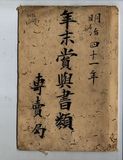 明治四十一年
年末賞與書類
專賣局